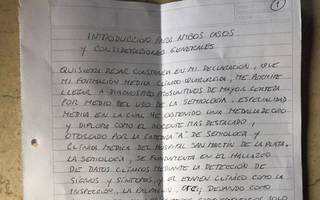 1
INTRODUCCION PARA AMBOS CASOS
Y CONSIDERACIONES GENERALES
QUISIERA DEJAR CONSTANCIA EN MI DECLARACION, QUE
MI FORMACION MEDICA CLINICO-QUIRURGICA, ME PERMITE
LLEGAR A DIAGNOSTICOS PRESUNTIVOS DE MAYOR CERTEZA
POR MEDIO DEL USO DE LA SEMIOLOGIA, ESPECIALIDAD
MEDICA EN LA CUAL HE OBTENIDO UNA MEDALLA DE ORO
Y DIPLOMA COMO EL DOCENTE MAS DESTACADO,
OTORGADO POR LA CATEDRA "A" DE SEMIOLOGIA Y
CLINICA MEDICA DEL HOSPITAL SAN MARTIN DE LA PLATA.
LA SEMIOLOGIA, SE FUNDAMENTA EN EL HALLAZGO
DE DATOS CLINICOS MEDIANTE LA DETECCION DE
SIGNOS Y SINTOMAS, Y EL EXAMEN CLINICO COMO LA
INSPECCION, LA PALPACION, ETC, DEJANDO COMO
SOLO